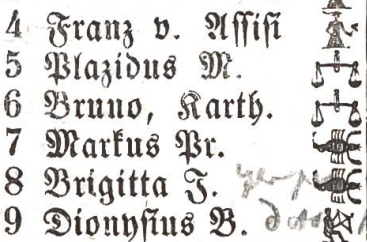 4 Franz v. Assisi
5 Plazidus M.
6 Bruno, Karth.
7 Markus Pr.
8 Brigitta J.
9 Dionysius B.